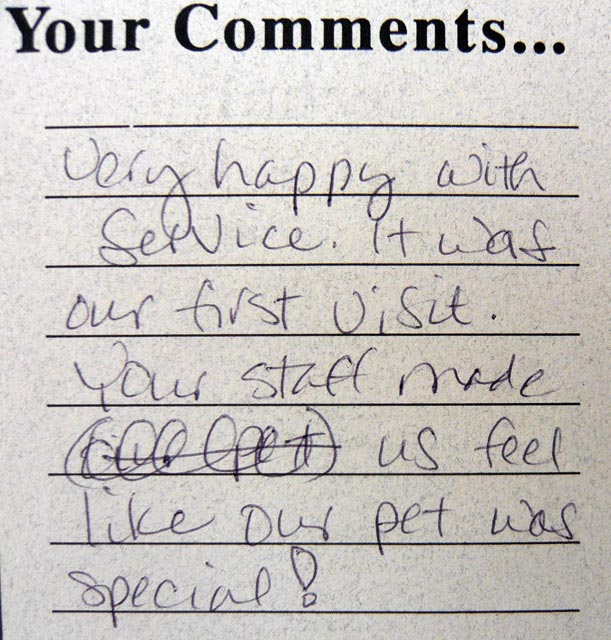 Your Comments...
Very happy with
Service. It was
our first visit.
Your staff made
us feel
like our pet was
special!